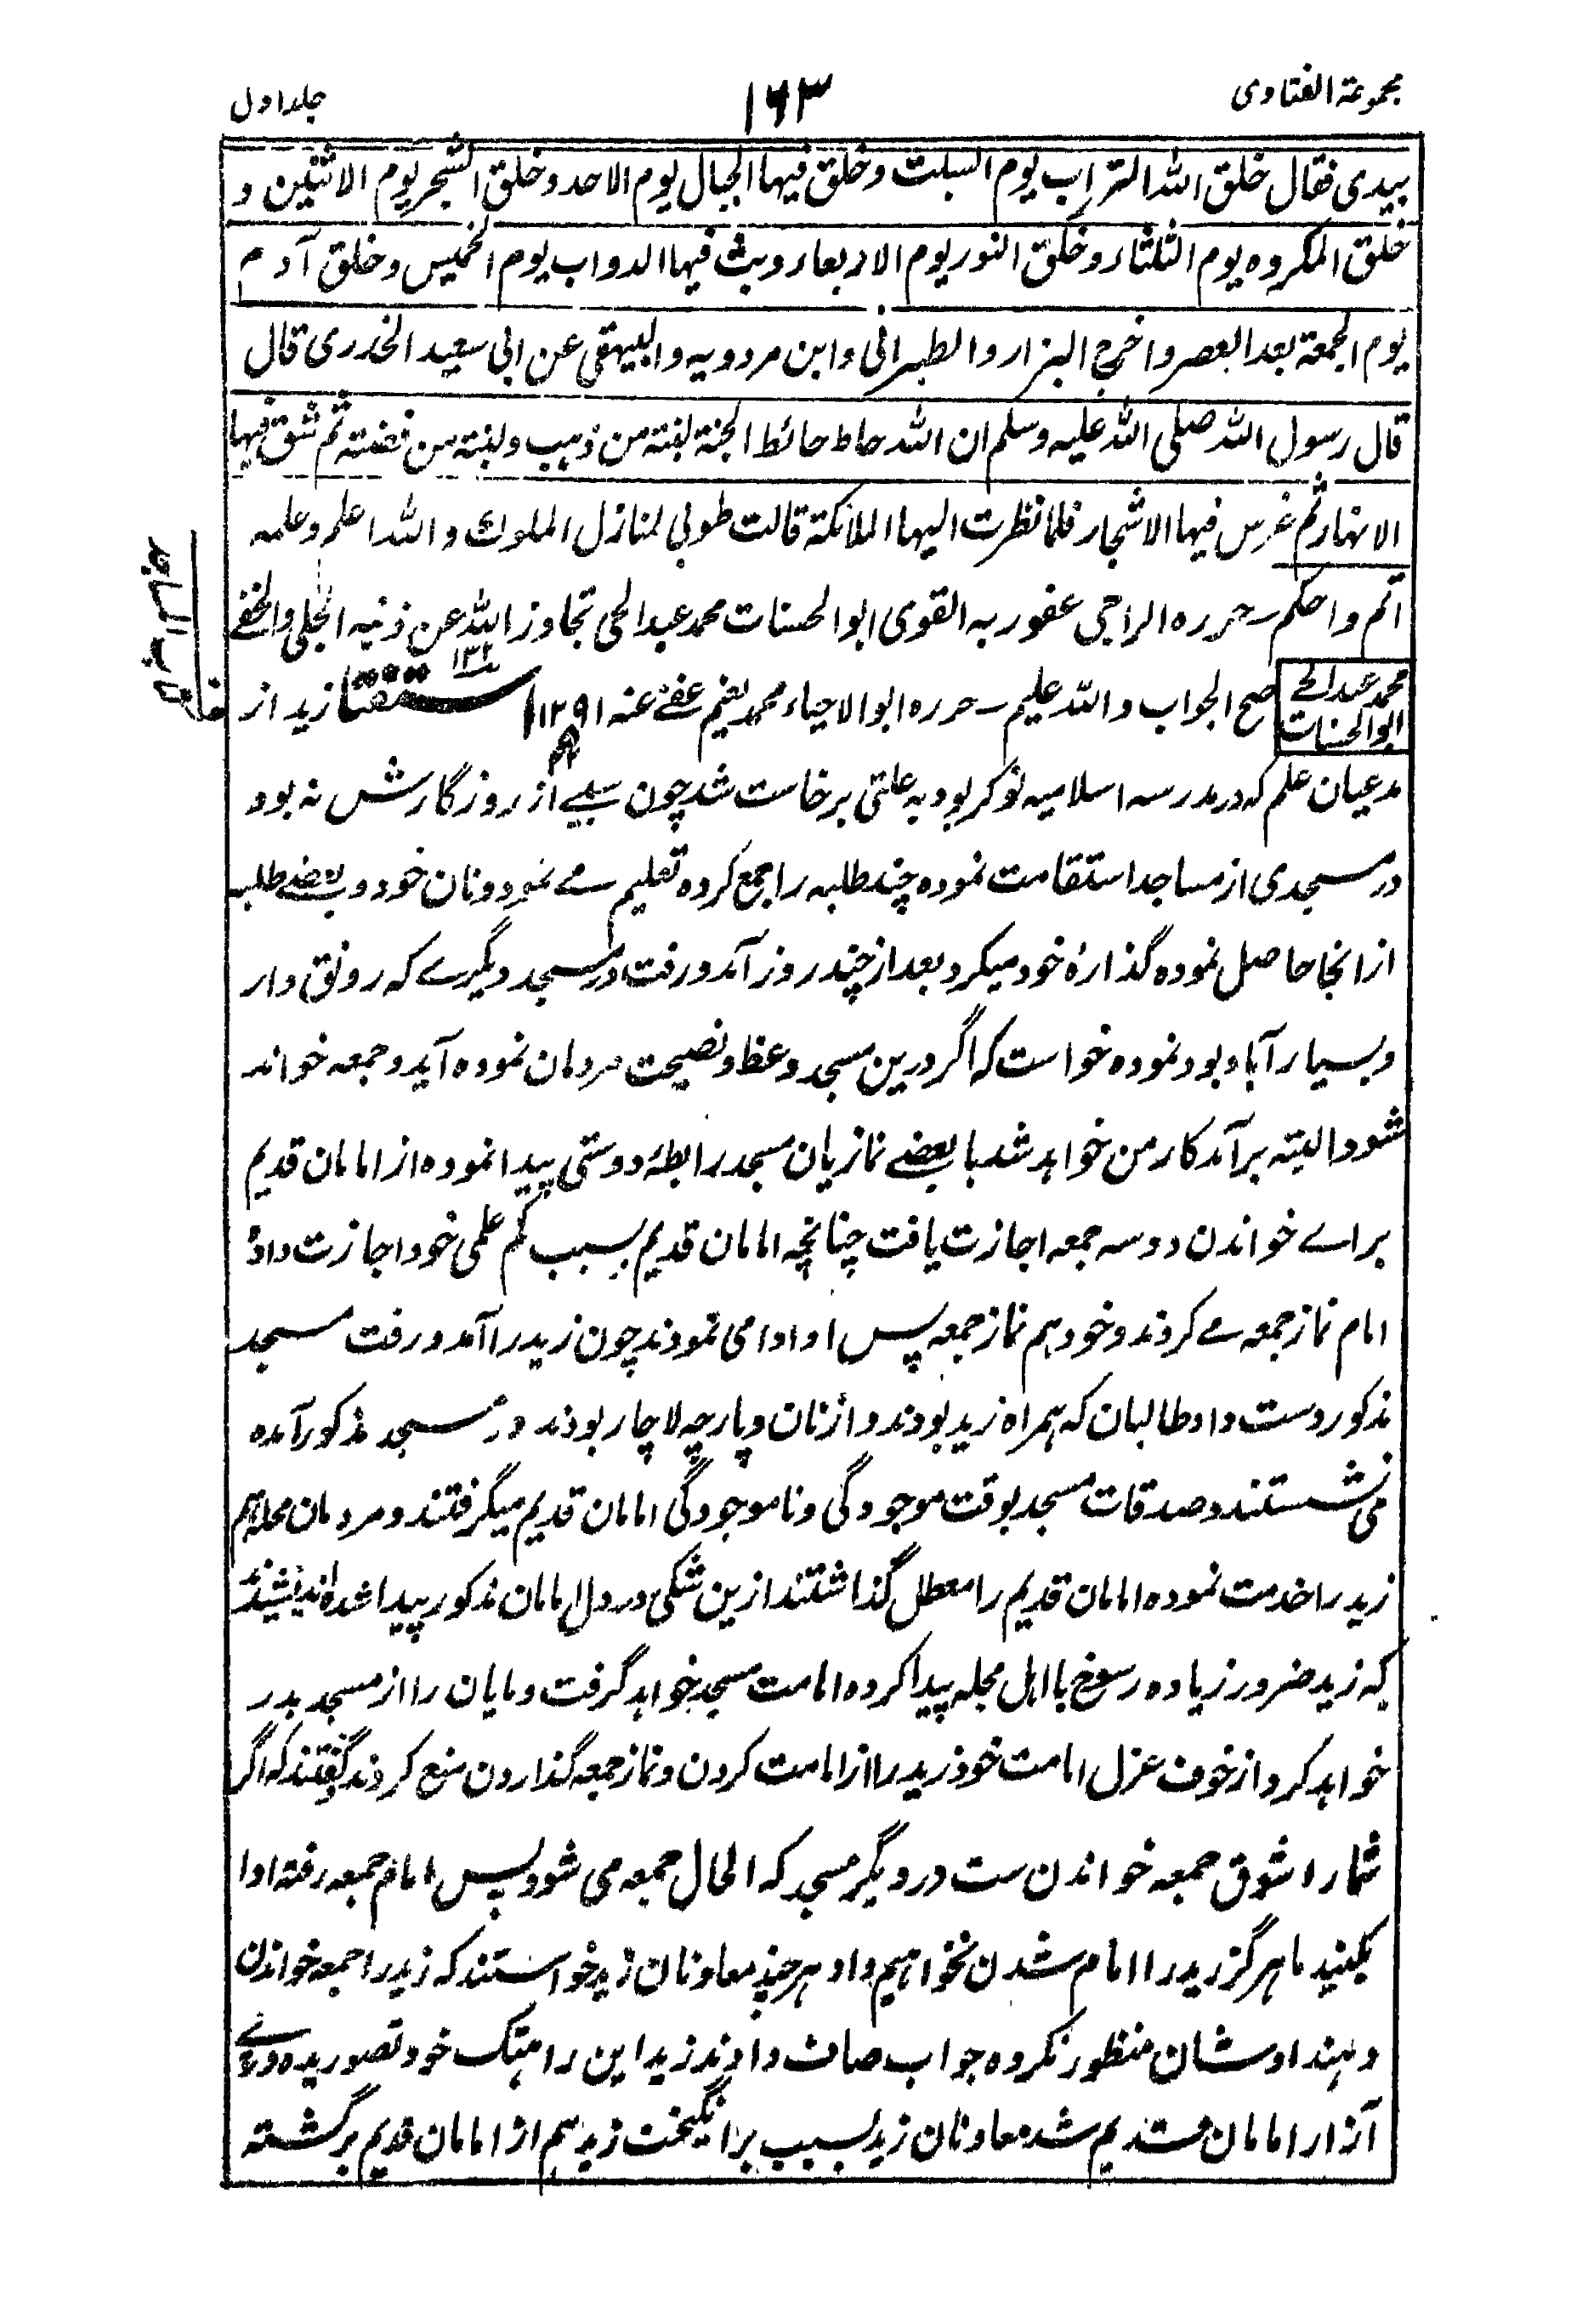 مجموعة الفتاوى
۱۶۳
جلد اول
بيدى فقال خلق الله التراب يوم السبت وخلق فيها الجبال يوم الاحد وخلق الشجر يوم الاثنين و
خلق المكروه يوم الثلثاء وخلق النور يوم الاربعاء وبث فيها الدواب يوم الخميس وخلق آدم
يوم الجمعة بعد العصر واخرج البزار والطبرانى وابن مردويه والبيهقى عن ابى سعيد الخدرى قال
قال رسول الله صلى الله عليه وسلم ان الله حاط حائط الجنة لبنة من ذهب ولبنة من فضة ثم شق فيها
الانهار ثم غرس فيها الاشجار فلما نظرت اليها الملائكة قالت طوبى لمنازل الملوك والله اعلم وعلمه
اتم واحكم ـ حرره الراجى عفو ربه القوى ابو الحسنات محمد عبد الحى تجاوز الله عن ذنبه الجلى والخفے
محمد عبدالحے ابو الحسنات صح الجواب والله عليم ـ حرره ابو الاحياء محمد نعيم عفے عنه ۱۲۹۱ استفتا ۱۳۲ زید از
مدعیان علم که در مدرسه اسلامیه نوکر بود به علتی برخاست شد چون سبیلے از روزگارش نه بود
در مسجدی از مساجد استقامت نموده چند طلبه را جمع کرده تعلیم مے نمود و نان خود و بعضے طلبه
از انجا حاصل نموده گذارهٔ خود میکرد بعد از چند روز آمد و رفت در مسجد دیگرے که رونق دار
و بسیار آباد بود نموده خواست که اگر درین مسجد وعظ و نصیحت مردمان نموده آید و جمعه خوانده
شود البته برآمد کار من خواهد شد با بعضے نمازیان مسجد رابطهٔ دوستی پیدا نموده از امامان قدیم
براے خواندن دو سه جمعه اجازت یافت چنانچه امامان قدیم بسبب کم علمی خود اجازت داده
امام نماز جمعه مے کردند و خود هم نماز جمعه پس او ادا می نمودند چون زید را آمد و رفت مسجد
مذکور دست داد طالبان که همراه زید بودند و از نان و پارچه لاچار بودند در مسجد مذکور آمده
می نشستند و صدقات مسجد بوقت موجودگی و ناموجودگی امامان قدیم میگرفتند و مردمان محله هم
زید را خدمت نموده امامان قدیم را معطل گذاشتند ازین شکی در دل امامان مذکور پیدا شده اندیشیدند
که زید ضرور زیاده رسوخ با اهل محله پیدا کرده امامت مسجد خواهد گرفت و مایان را از مسجد بدر
خواهد کرد از خوف عزل امامت خود زید را از امامت کردن و نماز جمعه گذاردن منع کردند و گفتند که اگر
شما را شوق جمعه خواندن ست در دیگر مسجد که الحال جمعه می شود پس امام جمعه رفته ادا
بکنید ما هرگز زید را امام شدن نخواهیم داد هرچند معاونان زید خواستند که زید را جمعه خواندن
دهند اوشان منظور نکرده جواب صاف دادند زید این را هتک خود تصوریده در پے
آزار امامان قدیم شد معاونان زید بسبب برانگیخت زید هم از امامان قدیم برگشته